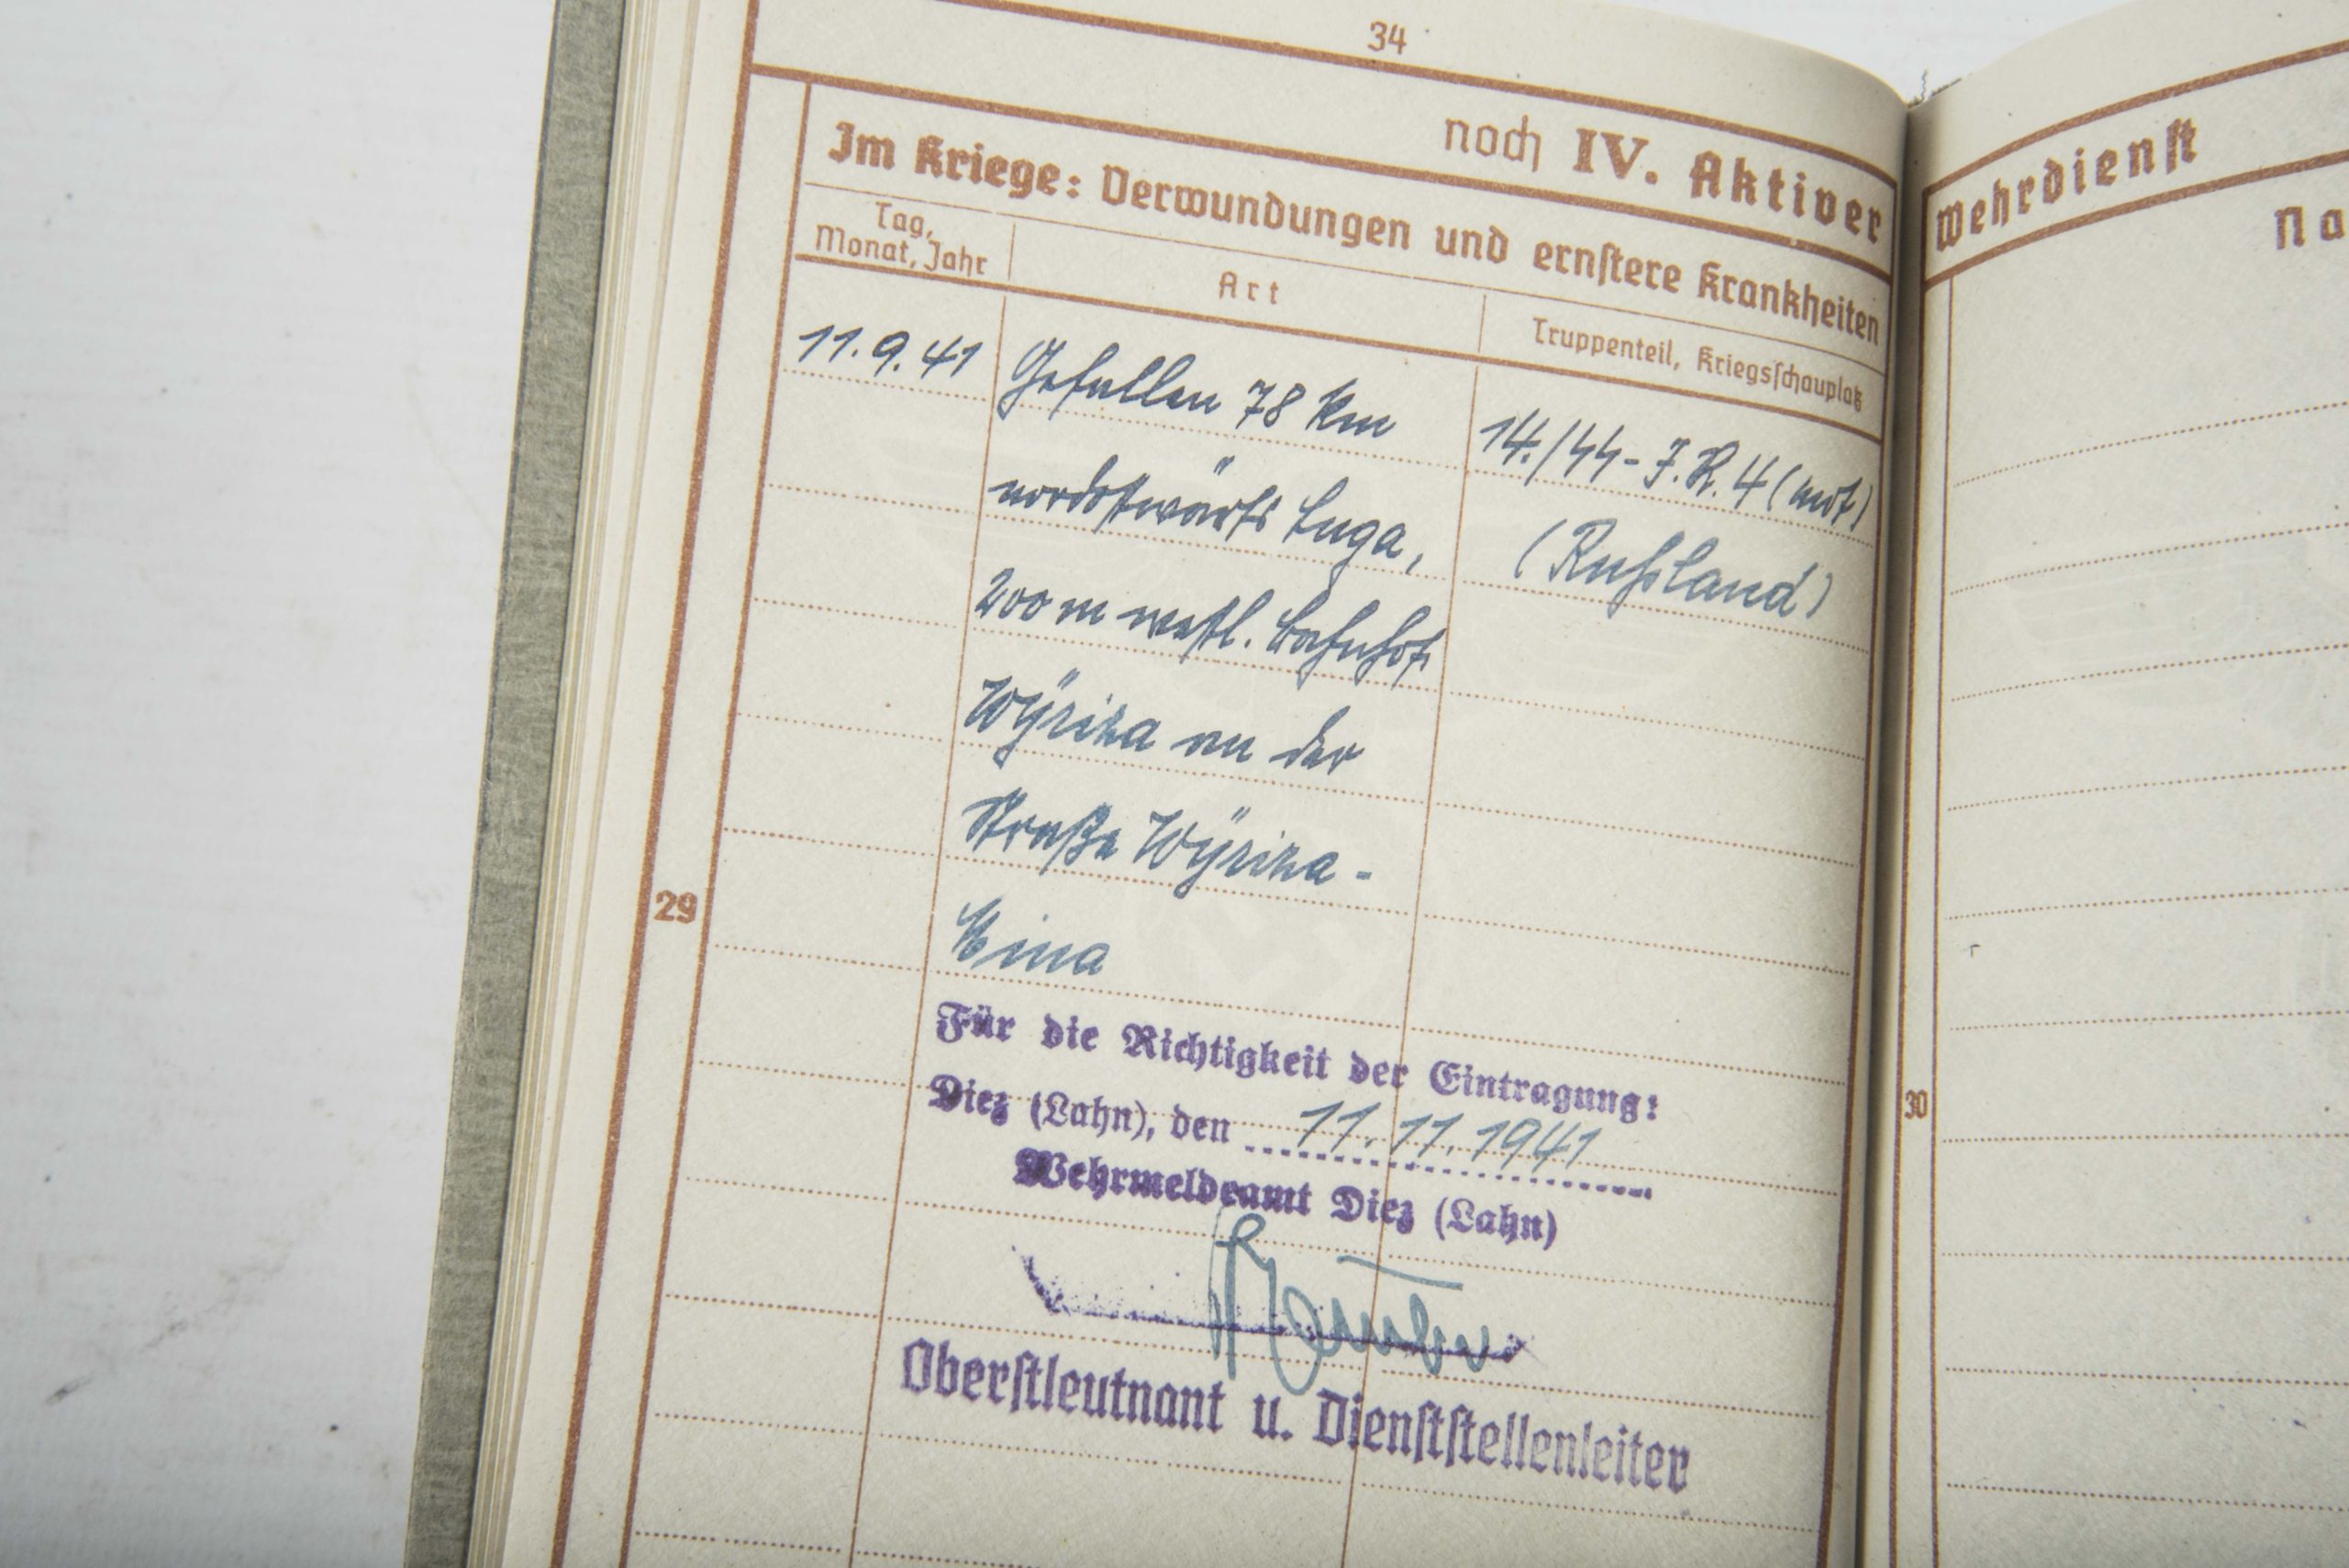 34
noch IV. Aktiver
Wehrdienst
Im Kriege: Verwundungen und ernstere Krankheiten
Tag,
Monat, Jahr
Art
Truppenteil, Kriegsschauplatz
11.9.41
Gefallen 78 km
nordostwärts Luga,
200 m westl. Bahnhof
Wÿriza an der
Straße Wÿriza -
Mina
14./SS-I.R.4 (mot)
(Rußland)
29
Für die Richtigkeit der Eintragung:
Diez (Lahn), den 11.11.1941
Wehrmeldeamt Diez (Lahn)
Oberstleutnant u. Dienststellenleiter
Na
30